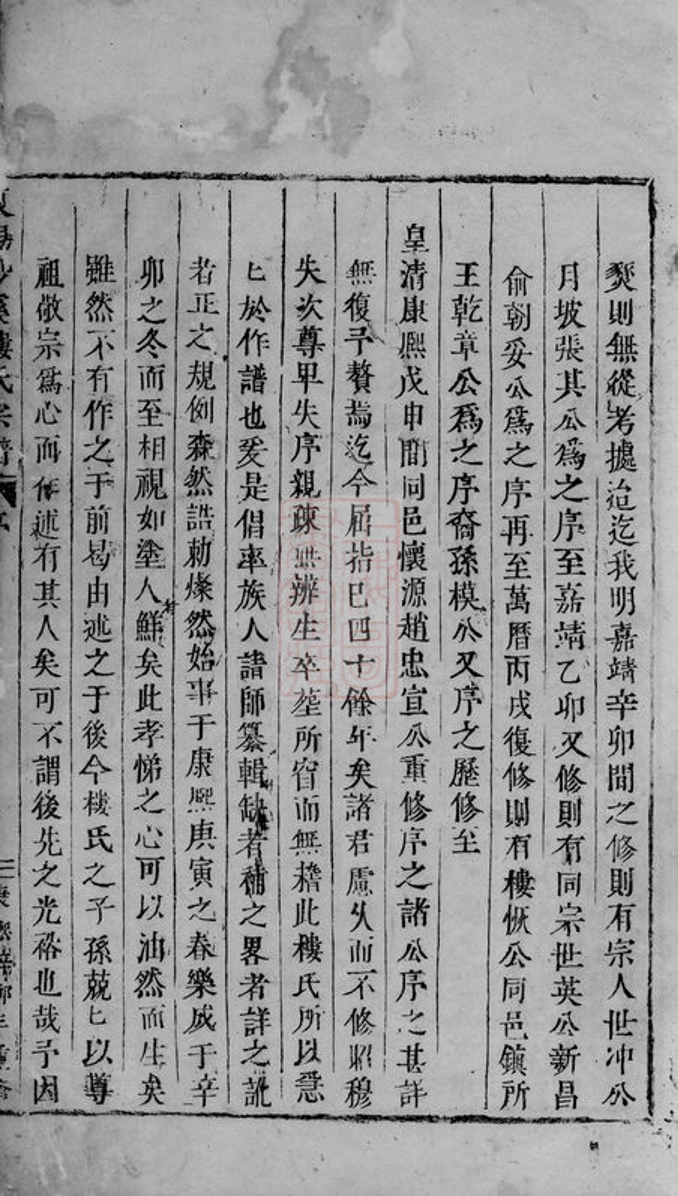 燹則無從考據迨迄我明嘉靖辛卯間之修則有宗人世冲公
月坡張其公爲之序至嘉靖乙卯又修則有同宗世英公新昌
俞朝妥公爲之序再至萬曆丙戌復修則有樓恢公同邑鎮所
王乾章公爲之序裔孫模公又序之歷修至
皇清康熈戊申間同邑懷源趙忠宣公重修序之諸公序之甚詳
無復予贅焉迄今屈指巳四十餘年矣諸君慮久而不修昭穆
失次尊卑失序親疎無辨生卒塟所窅而無稽此樓氏所以急
匕於作譜也爰是倡率族人諸師纂輯缺者補之畧者詳之訛
者正之規例森然誥勅燦然始事于康熈庚寅之春樂成于辛
卯之冬而至相視如塗人者鮮矣此孝悌之心可以油然而生矣
雖然不有作之于前曷由述之于後今樓氏之子孫兢匕以尊
祖敬宗爲心而作述有其人矣可不謂後先之光裕也哉予因
溪樓氏宗譜
二康熈辛卯年重脩